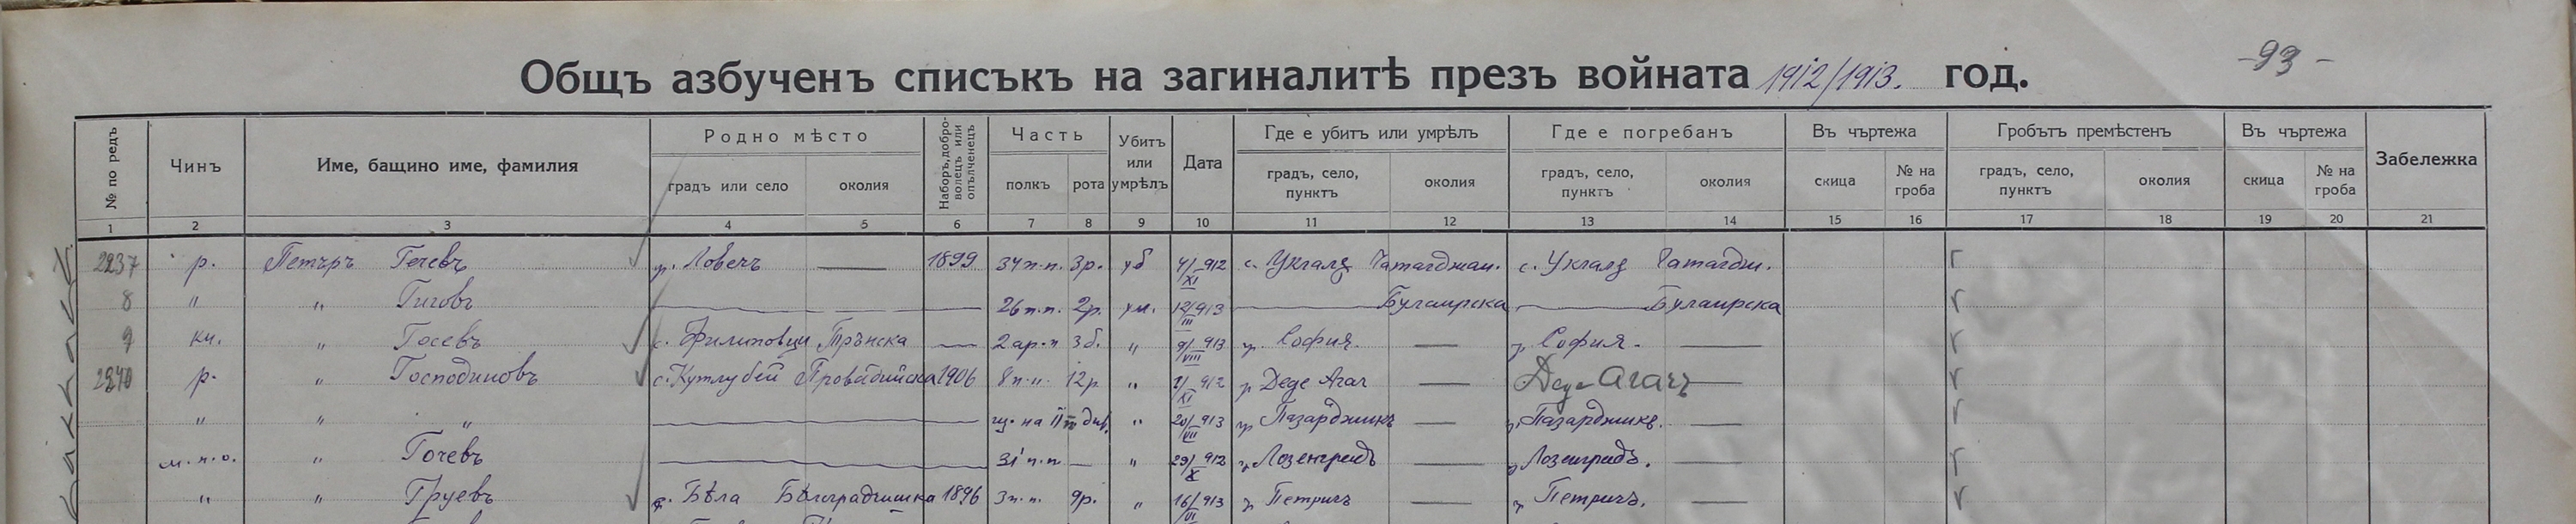 -93-
Общъ азбученъ списъкъ на загиналитѣ презъ войната 1912/1913. год.
№ по редъ Чинъ Име, бащино име, фамилия Родно мѣсто Наборъ, добро-волецъ или опълченецъ Часть Убитъ или умрѣлъ Дата Где е убитъ или умрѣлъ Где е погребанъ Въ чъртежа Гробътъ премѣстенъ Въ чъртежа Забележка
градъ или село околия полкъ рота градъ, село, пунктъ околия градъ, село, пунктъ околия скица № на гроба градъ, село, пунктъ околия скица № на гроба
1 2 3 4 5 6 7 8 9 10 11 12 13 14 15 16 17 18 19 20 21
2237 р. Петъръ Гечевъ гр. Ловечъ — 1899 34 п.п. 3р. уб 4/XI 912 с. Чаталджан. с. Чаталдж.
8 " " Гиговъ — 26 п.п. 2р. ум. 12/III 913 — Булаирска — Булаирска
9 " Госевъ с. Филиповци Трънска — 2 ар. п 3 б. " 9/VIII 913 гр. София. — гр. София. —
2240 р. " Господиновъ с. Кутлубей Провадийска 1906 8 п.п. 12р " XI 912 гр Деде Агач — Деде Агачъ —
" " " — на II див. " 20/VII 913 гр Пазарджикъ — гр. Пазарджикъ. —
м.п.о. " Гочевъ — 31 п.п. — " 29/X 912 гр Лозенградъ — гр Лозенградъ. —
" " Груевъ Бѣла Бѣлоградчишка 1896 3 п.п. 9р. " 16/VII 913 гр Петричъ — гр Петричъ. —